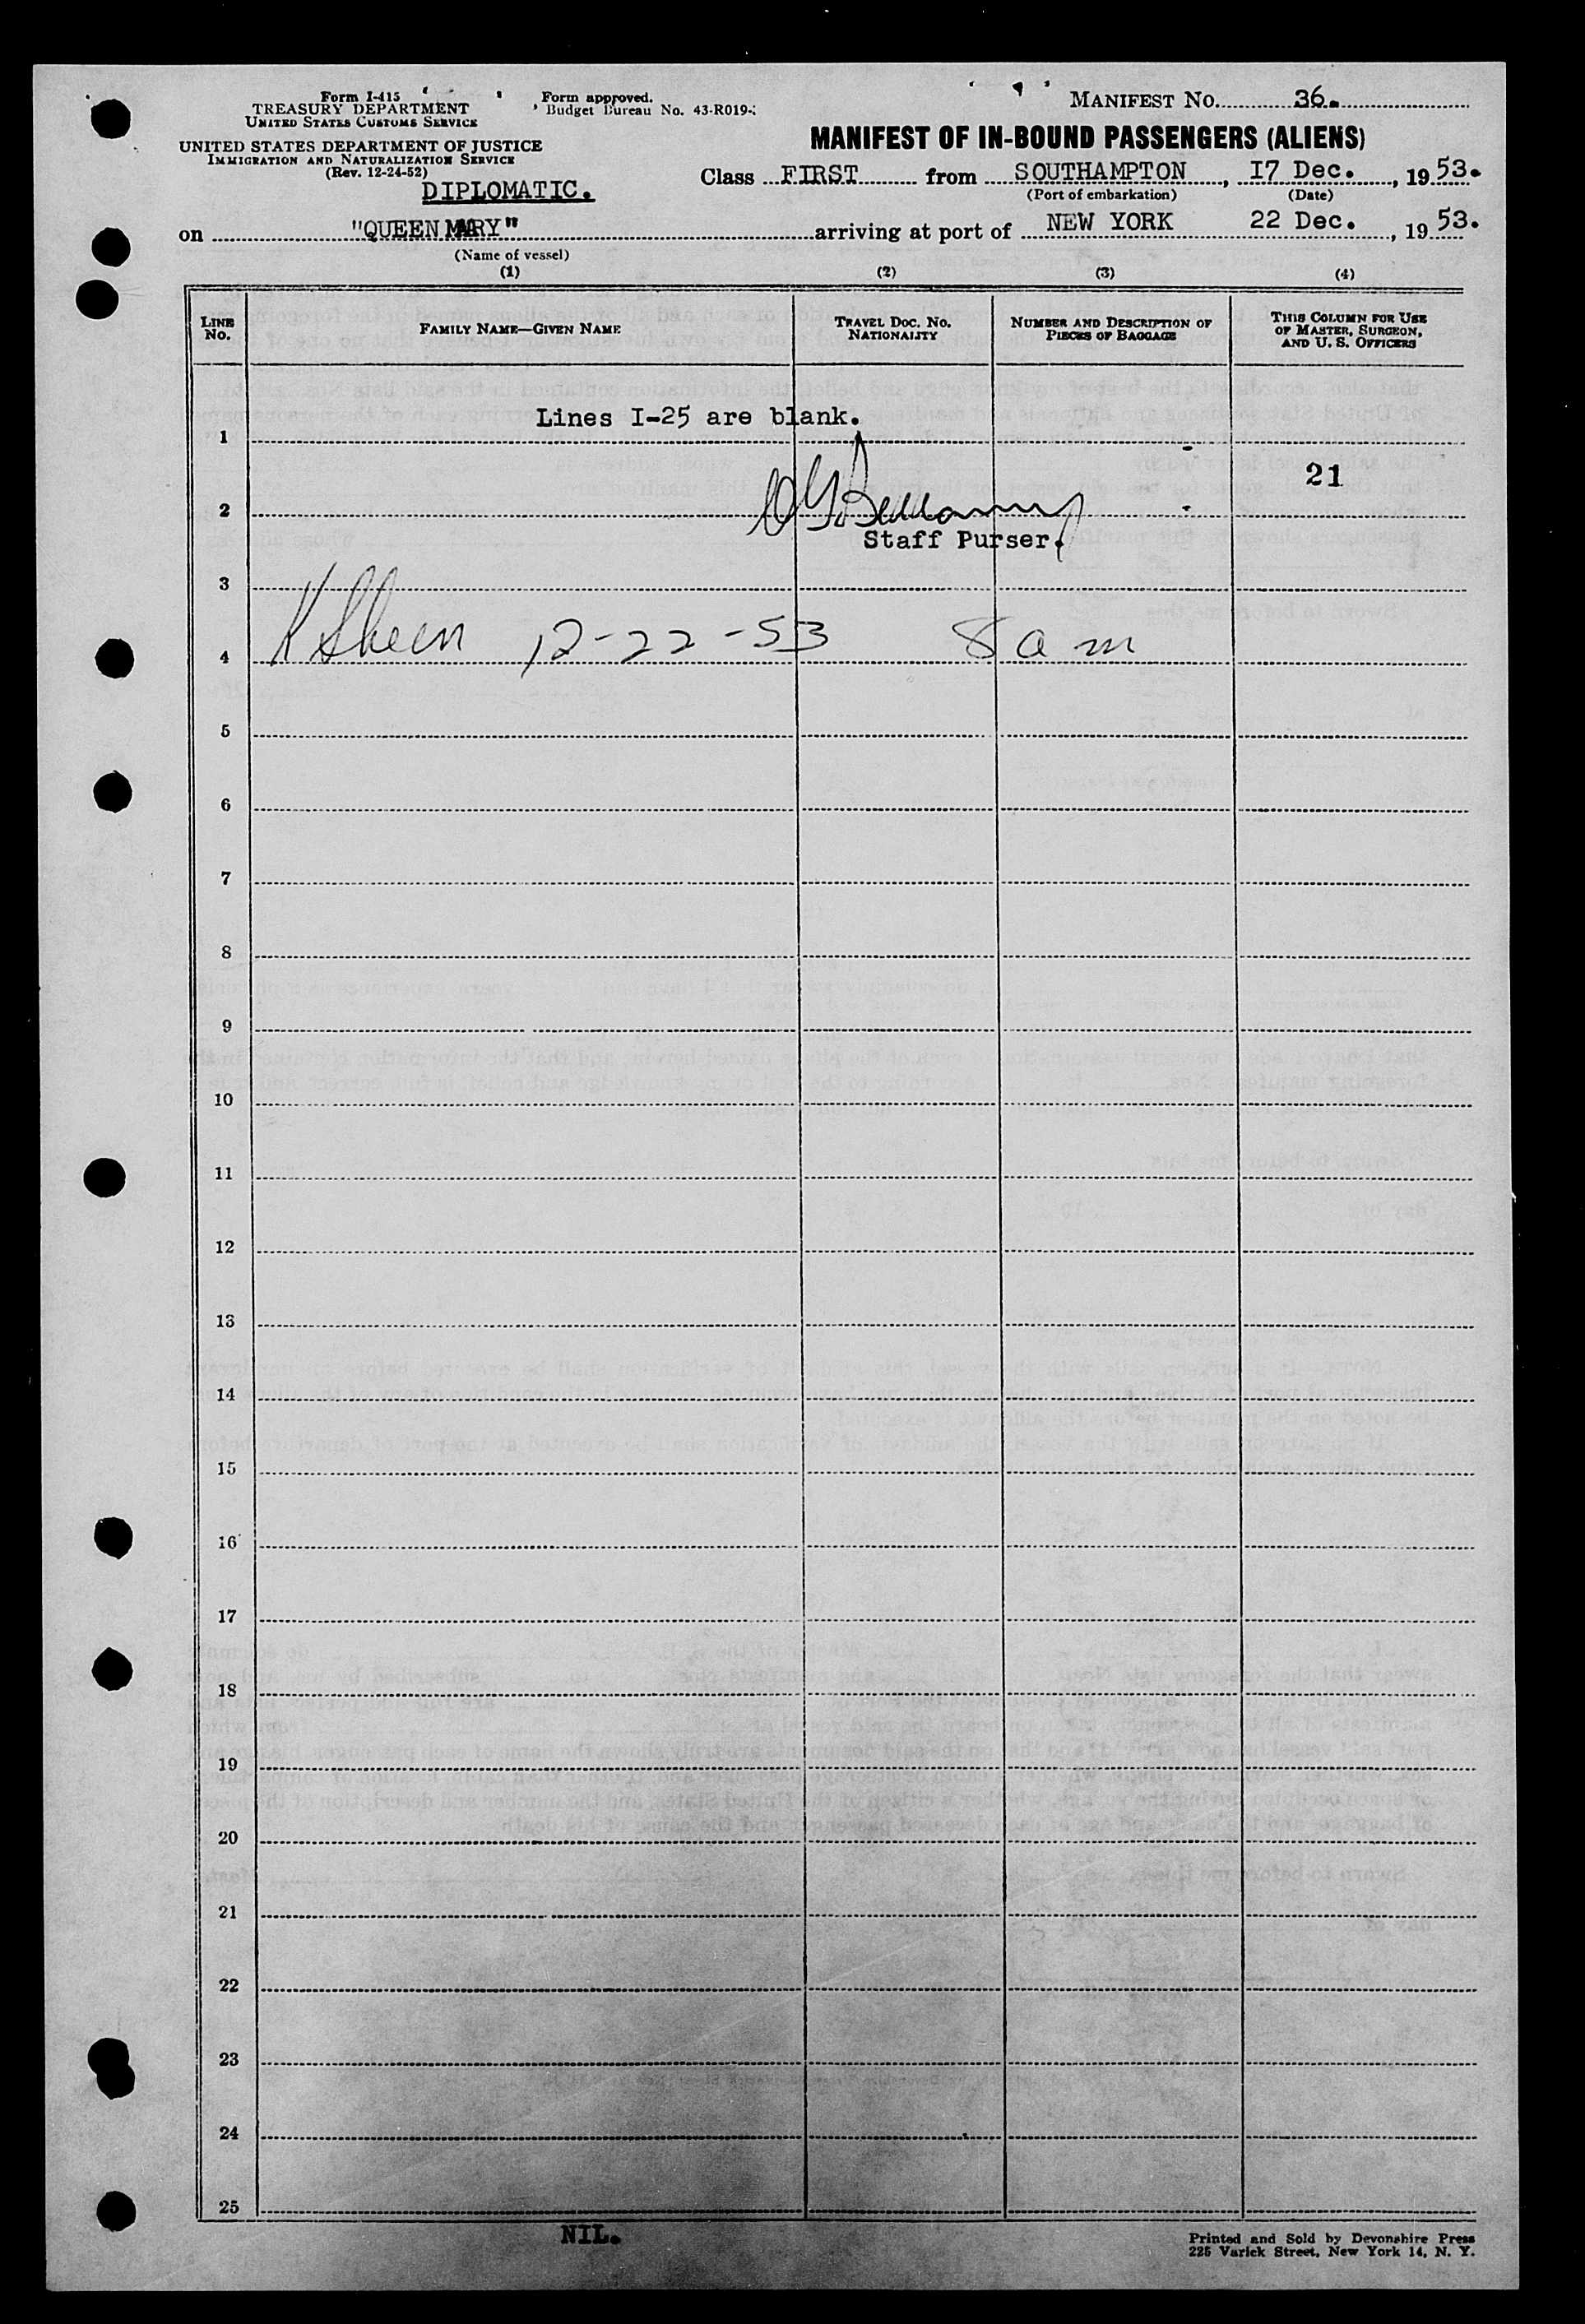 Form I-415
TREASURY DEPARTMENT
UNITED STATES CUSTOMS SERVICE
UNITED STATES DEPARTMENT OF JUSTICE
IMMIGRATION AND NATURALIZATION SERVICE
(Rev. 12-24-52)
DIPLOMATIC.
Form approved.
Budget Bureau No. 43-R019-
MANIFEST NO. 36.
MANIFEST OF IN-BOUND PASSENGERS (ALIENS)
Class FIRST from SOUTHAMPTON, I7 Dec., 1953.
(Port of embarkation) (Date)
on "QUEEN MARY" arriving at port of NEW YORK 22 Dec., 1953.
(Name of vessel)
(1) (2) (3) (4)
LINE NO.
FAMILY NAME—GIVEN NAME
TRAVEL DOC. NO. NATIONALITY
NUMBER AND DESCRIPTION OF PIECES OF BAGGAGE
THIS COLUMN FOR USE OF MASTER, SURGEON, AND U. S. OFFICERS
Lines I-25 are blank.
1
21
2
Staff Purser.
3
4 12-22-53 8 am
5
6
7
8
9
10
11
12
13
14
15
16
17
18
19
20
21
22
23
24
25
NIL.
Printed and Sold by Devonshire Press
225 Varick Street, New York 14, N. Y.